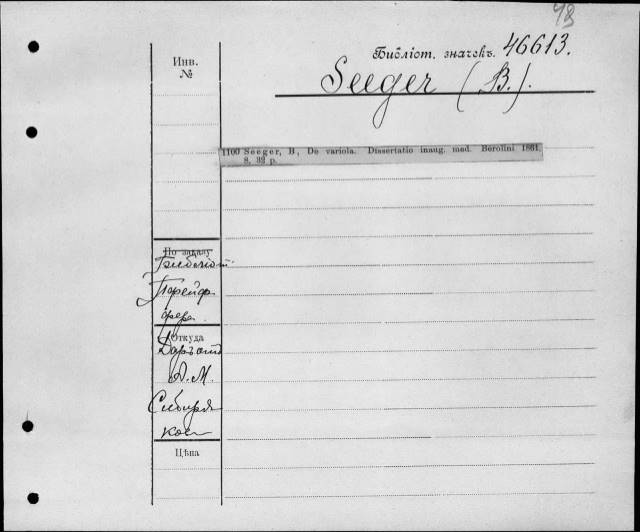 43
Библіот. значекъ. 46613.
Инв.
№
Seeger (B.).
1100 Seeger, B., De variola. Dissertatio inaug. med. Berolini 1861.
8. 32 p.
По заказу
Библіот.
Пфейф
фера.
Откуда
Даръ отъ
А. М.
Сибиря
кова
Цѣна